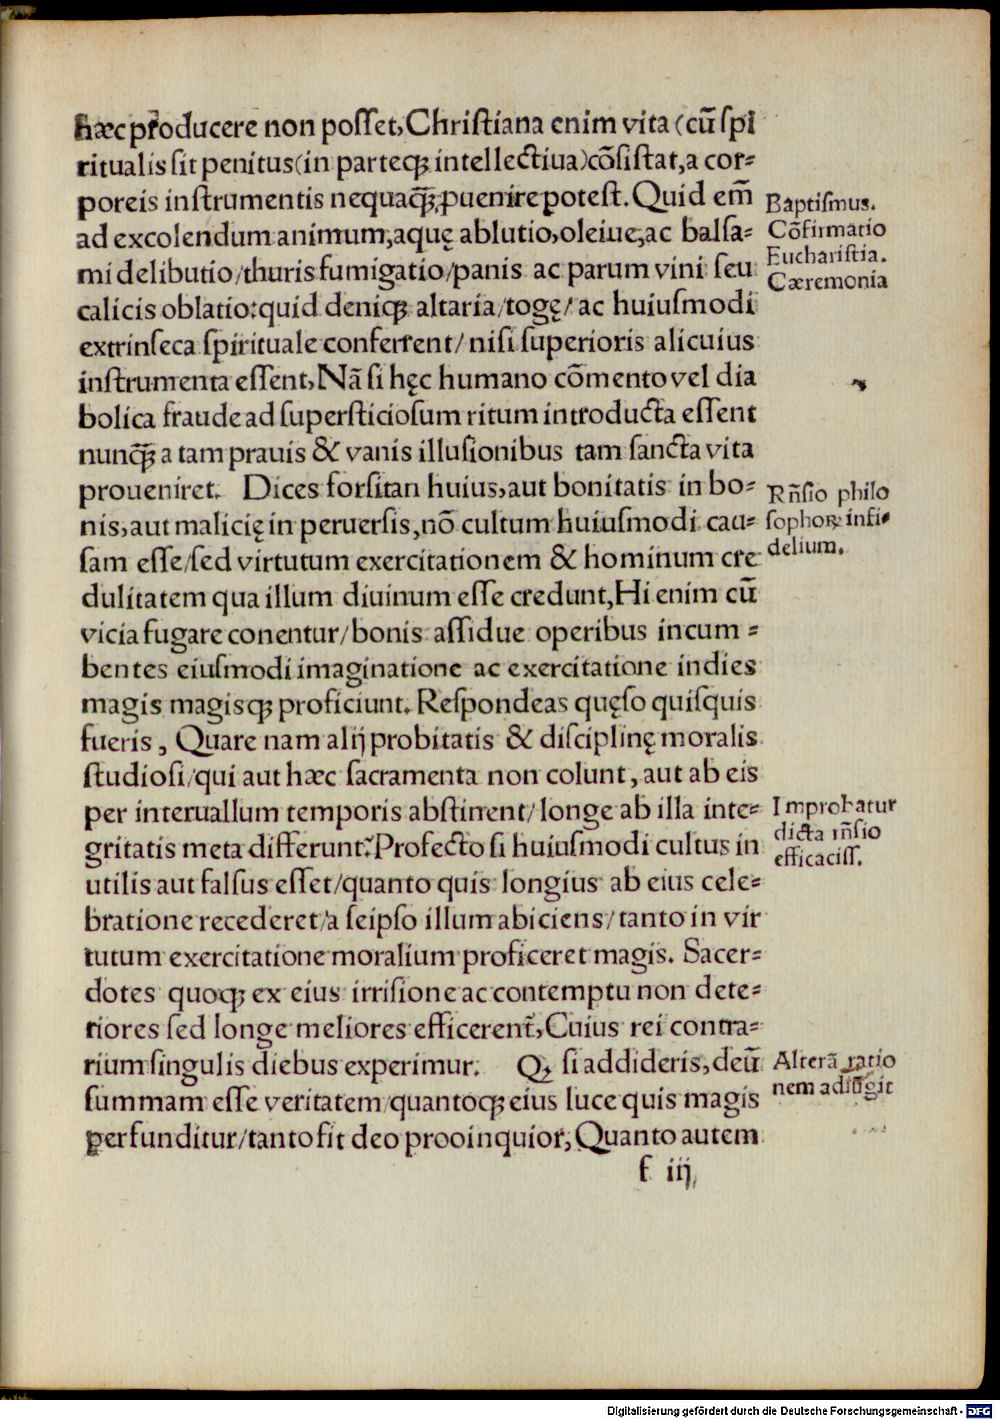 hæc producere non posset, Christiana enim vita (cū spi
ritualis sit penitus (in parteqꝫ intellectiua) cōsistat, a cor⸗
poreis instrumentis nequaqꝫ̄ ꝓuenire potest. Quid em̄
ad excolendum animum, aquę ablutio, oleiue, ac balsa⸗
mi delibutio/thuris fumigatio/panis ac parum vini seu
calicis oblatio: quid deniqꝫ altaria/togę/ ac huiusmodi
extrinseca spirituale conferrent/ nisi superioris alicuius
instrumenta essent, Nā si hęc humano cōmento vel dia
bolica fraude ad supersticiosum ritum introducta essent
nunqꝫ̄ a tam prauis & vanis illusionibus tam sancta vita
proueniret. Dices forsitan huius, aut bonitatis in bo⸗
nis, aut malicię in peruersis, nō cultum huiusmodi cau⸗
sam esse/sed virtutum exercitationem & hominum cre
dulitatem qua illum diuinum esse credunt, Hi enim cū
vicia fugare conentur/bonis assidue operibus incum⸗
bentes eiusmodi imaginatione ac exercitatione indies
magis magisqꝫ proficiunt. Respondeas quęso quisquis
fueris, Quare nam alij probitatis & disciplinę moralis
studiosi/qui aut hæc sacramenta non colunt, aut ab eis
per interuallum temporis abstinent/longe ab illa inte⸗
gritatis meta differunt? Profecto si huiusmodi cultus in
utilis aut falsus esset/quanto quis longius ab eius cele⸗
bratione recederet/a seipso illum abiciens/tanto in vir
tutum exercitatione moralium proficeret magis. Sacer⸗
dotes quoqꝫ ex eius irrisione ac contemptu non dete⸗
riores sed longe meliores efficerent, Cuius rei contra⸗
rium singulis diebus experimur. Qꝫ si addideris, deū
summam esse veritatem quantoqꝫ eius luce quis magis
perfunditur/tanto fit deo prooinquior, Quanto autem
f iij
Baptismus.
Cōfirmatio
Eucharistia.
Cæremonia
Rn̄sio philo
sophoꝝ infi⸗
delium.
Improbatur
dicta rn̄sio
efficaciss.
Alterā ratio
nem adiūgit
Digitalisierung gefördert durch die Deutsche Forschungsgemeinschaft - DFG